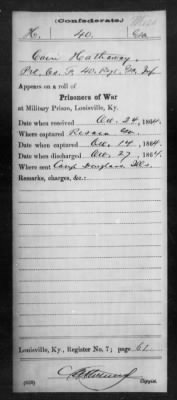 (Confederate.)
H. 40. Ga.
Cain Hathaway
Pvt. Co. F, 40 Regt. Ga. Inf.
Appears on a roll of
Prisoners of War
at Military Prison, Louisville, Ky.
Date when received Oct. 24, 1864.
Where captured Resaca Ga.
Date when captured Oct. 14, 1864.
Date when discharged Oct. 27, 1864.
Where sent Camp Douglas Ills.
Remarks, charges, &c.:
Louisville, Ky., Register No. 7; page 61
Copyist.